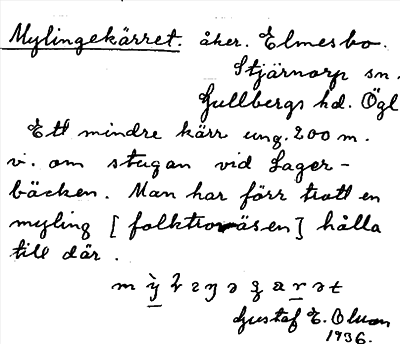 Mylingekärret. åker. Elmesbo.
Stjärnorp sn.
Gullbergs hd. Ögl
Ett mindre kärr ung. 200 m.
v. om stugan vid Lager-
bäcken. Man har förr trott en
myling [folktroväsen] hålla
till där.
Gustaf E. Olsson
1936.